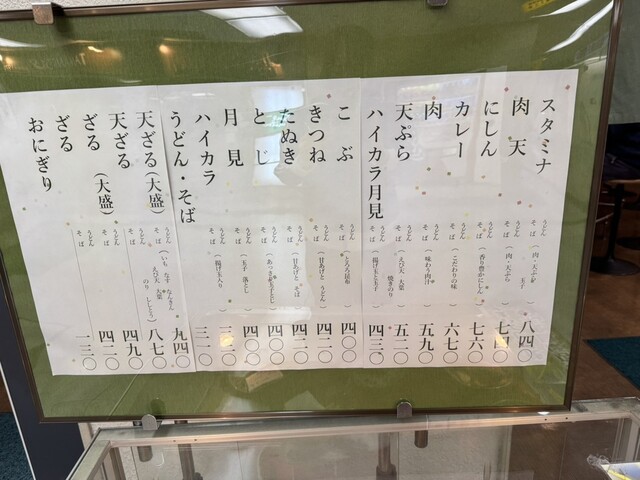 スタミナ うどん そば (肉・天ぷら 玉子) 八四〇
肉天 うどん そば (肉・天ぷら) 七四〇
にしん うどん そば (香り豊かにしん) 七六〇
カレー うどん そば (こだわりの味) 六七〇
肉 うどん そば (味わう肉汁) 五九〇
天ぷら うどん そば (えび天 大葉 焼きのり) 五二〇
ハイカラ月見 うどん そば (揚げ玉と玉子) 四三〇
こぶ うどん そば (とろろ昆布) 四〇〇
きつね うどん そば (甘あげと うどん) 四二〇
たぬき うどん そば (甘あげと そば) 四二〇
とじ うどん そば 四〇〇
月見 うどん そば (玉子 落とし) 四〇〇
ハイカラ うどん そば (揚げ玉入り)
うどん・そば 三一〇
天ざる(大盛) うどん そば (いも なす なんきん えび天 大葉 のり ししとう) 九四〇
天ざる うどん そば 八七〇
ざる(大盛) うどん そば 四九〇
ざる うどん そば 四二〇
おにぎり 一三〇